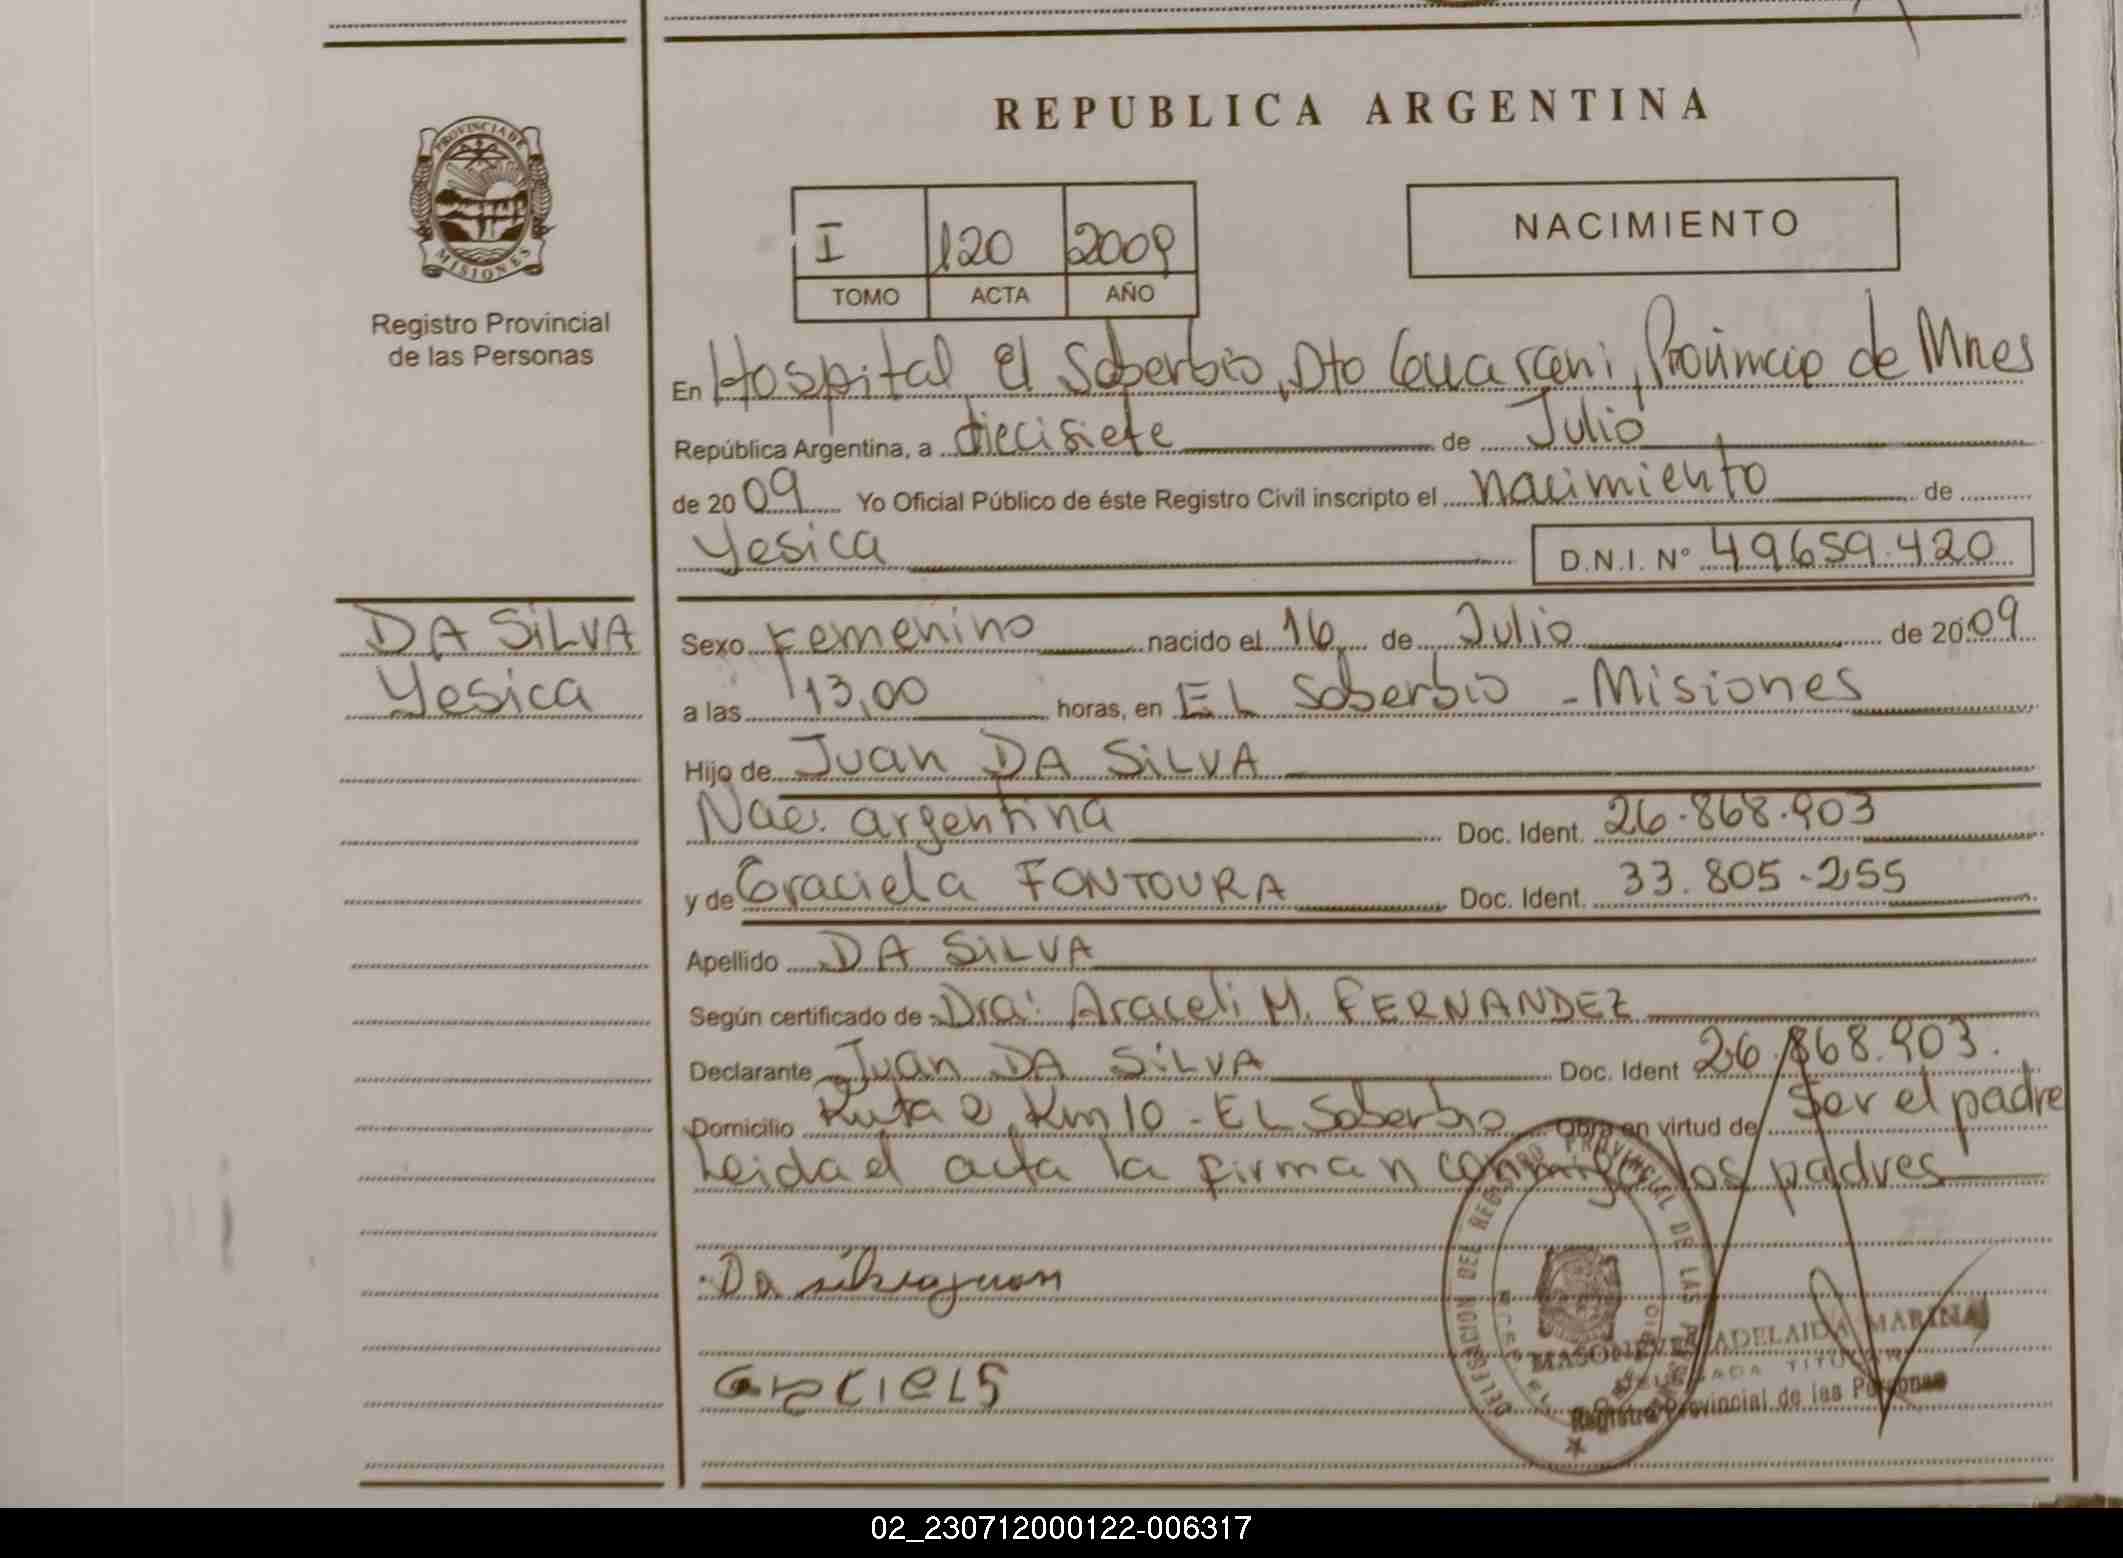 REPUBLICA ARGENTINA
PROVINCIA DE
MISIONES
Registro Provincial
de las Personas
I 120 2009
TOMO ACTA AÑO
NACIMIENTO
En Hospital El Soberbio, Dto Guaraní, Provincia de Mnes
República Argentina, a diecisiete de Julio
de 2009 Yo Oficial Público de éste Registro Civil inscripto el nacimiento de
Yesica D.N.I. Nº 49659.420
DA SiLVA
Yesica
Sexo Femenino nacido el 16 de Julio de 2009
a las 13,00 horas, en EL Soberbio - Misiones
Hijo de Juan DA SiLVA
Nac. argentina Doc. Ident. 26.868.903
y de Graciela FONTOURA Doc. Ident. 33.805.255
Apellido DA SiLVA
Según certificado de Dra: Araceli M. FERNANDEZ
Declarante Juan DA SiLVA Doc. Ident 26.868.903.
Domicilio Ruta 2 Km 10 - EL Soberbio Obra en virtud de Ser el padre
Leida el acta la firman conmigo los padres
DELEGACION DEL REGISTRO PROVINCIAL DE LAS
Da silva juan
ADELAIDA MARINA
TITULAR
Registro Provincial de las Personas
02_230712000122-006317